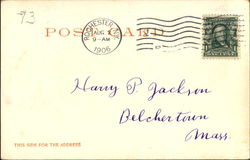 93
POSTCARD
ROCHESTER, N.Y.
AUG
9-AM
1906
Harry P Jackson
Belchertown
Mass.
THIS SIDE FOR THE ADDRESS